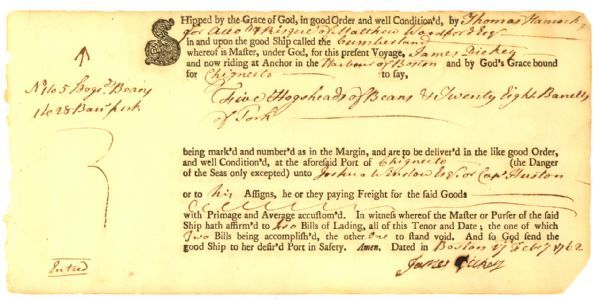 SHipped by the Grace of God, in good Order and well Condition'd, by Thomas Hancock
for Acco & Risque of Matthew Woodford Esqr
in and upon the good Ship called the Cumberland
whereof is Master, under God, for this present Voyage, James Dickey
and now riding at Anchor in the Harbour of Boston and by God's Grace bound
for Chignecto to say,
Five Hogsheads of Beans & Twenty Eight Barells
of Pork
No 1 to 5 Hogsds Beans
1 to 28 Barr Pork
being mark'd and number'd as in the Margin, and are to be deliver'd in the like good Order,
and well Condition'd, at the aforesaid Port of Chignecto (the Danger
of the Seas only excepted) unto Joshua Winslow Esqr or Capt Huston
or to his Assigns, he or they paying Freight for the said Goods
with Primage and Average accustom'd. In witness whereof the Master or Purser of the said
Ship hath affirm'd to two Bills of Lading, all of this Tenor and Date; the one of which
Two Bills being accomplish'd, the other One to stand void. And so God send the
good Ship to her desir'd Port in Safety. Amen. Dated in Boston 17 Feby 1762
James Dickey
Entred